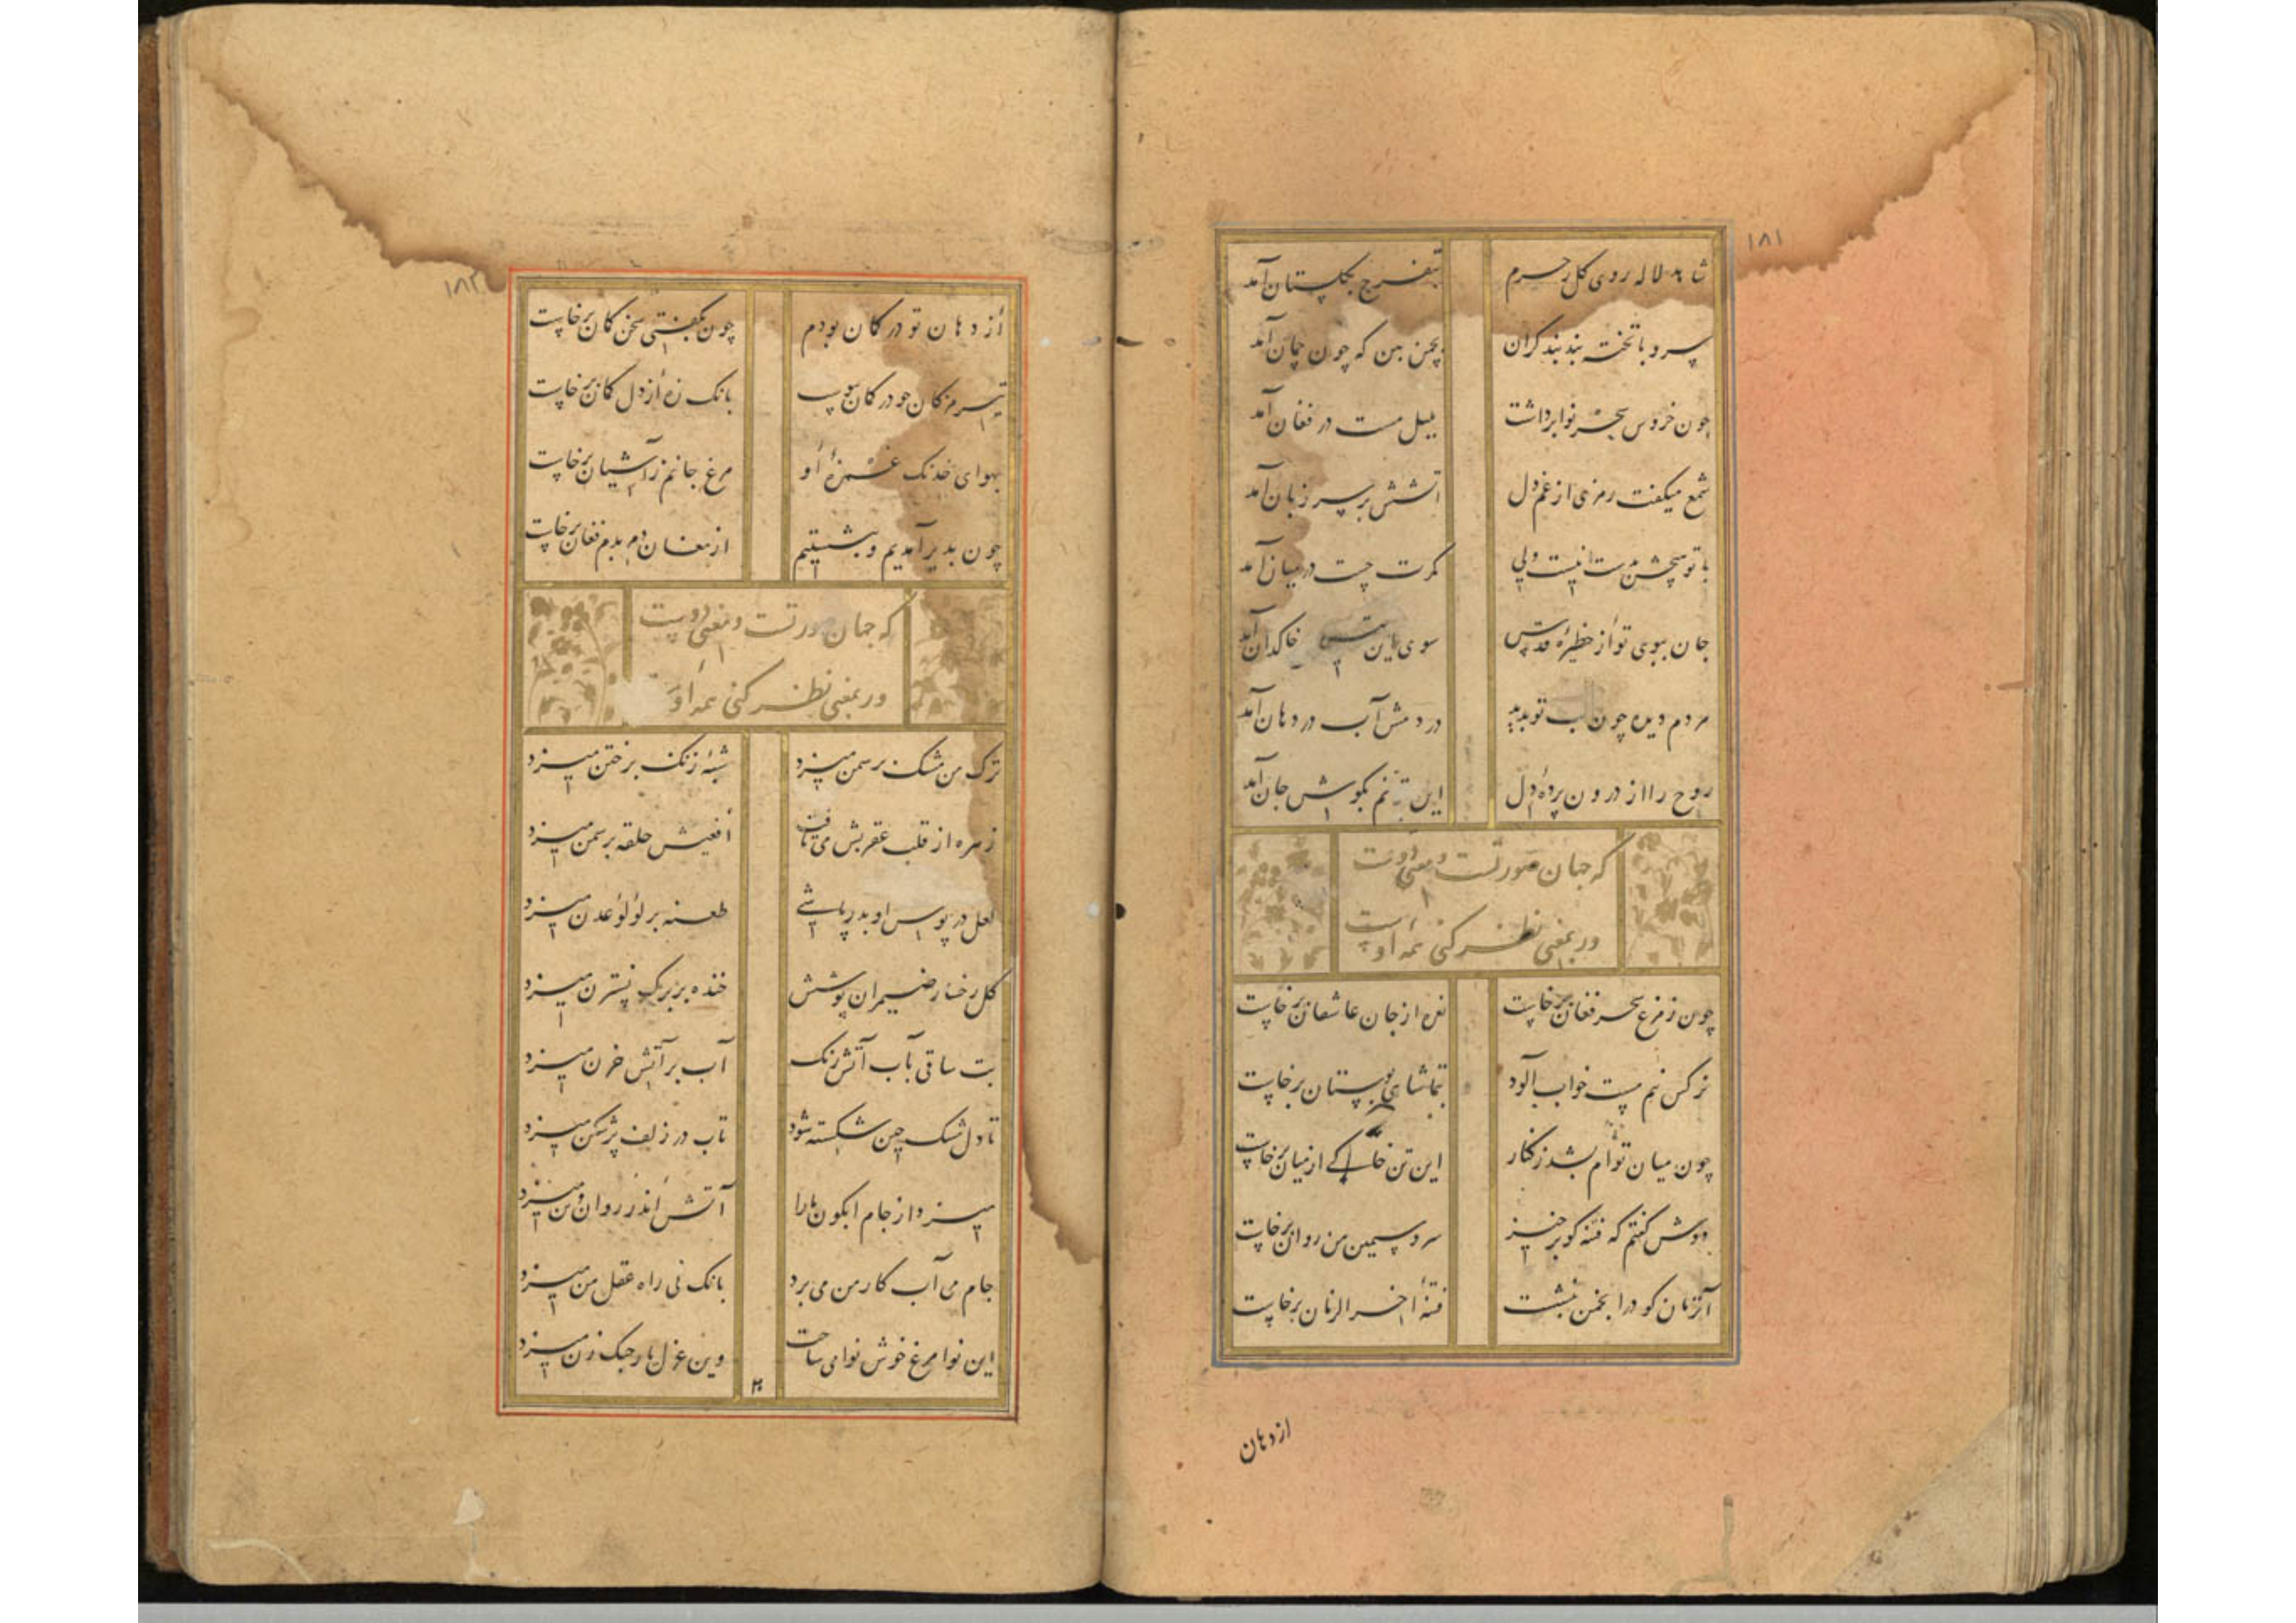 ۱۸۱
شاهد لاله روی گل رخسرم بتفرج بگلستان آمد
سرو با تخته بند بند کران بچمن بین که چون چمان آمد
چون خروس سحر نوا برداشت بلبل مست در فغان آمد
شمع میگفت رمزی از غم دل آتشش بر سر زبان آمد
با تو هیچش بدست نیست ولی کمرت چست در میان آمد
جان ببوی تو از حظیرهٔ قدس سوی خاکدان آمد
مردم دیده چون لب تو بدید در دمش آب در دهان آمد
روح را از درون پردهٔ دل این ترنم بگوش جان آمد
که جهان صورتست و معنی دوست
ور بمعنی نظر کنی همه اوست
چون ز مرغ سحر فغان برخاست نعره از جان عاشقان برخاست
نرکس نیم مست خواب آلود بتماشای بوستان برخاست
چون میان توام بشد ز کنار این تن خاکی از میان برخاست
دوش کفتم که فتنه کو برخیز سرو سیمین من روان برخاست
آنزمان کو در انجمن بنشست فتنهٔ آخر الزمان برخاست
از دهان
۱۸۲
از دهان تو در کمان بودم چون بکفتی سخن کمان برخاست
تیر مژکان چو در کمان بانک زه از دل کمان برخاست
بهوای خدنک غمزهٔ او مرغ جانم ز آشیان برخاست
چون بدیر آمدیم و بنشستیم از مغان دم بدم فغان برخاست
که جهان صورتست و معنی دوست
ور بمعنی نظر کنی همه اوست
ترک من مشک بر سمن میزد شبهٔ زنک بر ختن میزد
زهره از قلب عقربش می تافت افعیش حلقه بر سمن میزد
لعل در پوش او بدر پاشی طعنه بر لؤلؤ عدن میزد
کل رخسار ضیمران پوشش خنده بر برک نسترن میزد
بت ساقی بآب آتش رنک آب بر آتش حزن میزد
تا دل مشک چین شکسته شود تاب در زلف پرشکن میزد
میزد از جام آبکون ما را آتش اندر روان و تن میزد
جام می آب کار من می برد بانک نی راه عقل من میزد
این نوا مرغ خوش نوا می ساخت وین غزل یار چنک زن میزد